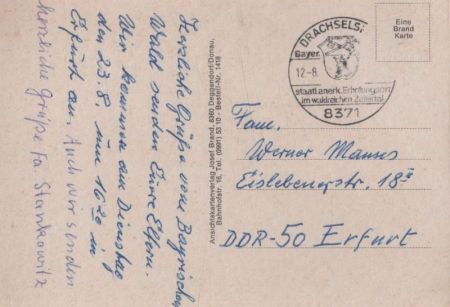 Herzliche Grüße vom Bayrischen
Wald senden Eure Eltern.
Wir kommen am Dienstag
den 23.8. um 16²⁰ in
Erfurt an. Auch wir senden
herzliche Grüße Fa. Stankowitz
Ansichtskartenverlag Josef Brand, 8360 Deggendorf/Donau,
Bahnhofstr. 16, Tel. (0991) 53 10 - Bestell-Nr. 1418
DRACHSELSR
Bayer.
12.-8.
staatl. anerk. Erholungsort
im waldreichen Zellertal
8371
Eine
Brand
Karte
Fam.
Werner Manns
Eislebenerstr. 18
DDR-50 Erfurt